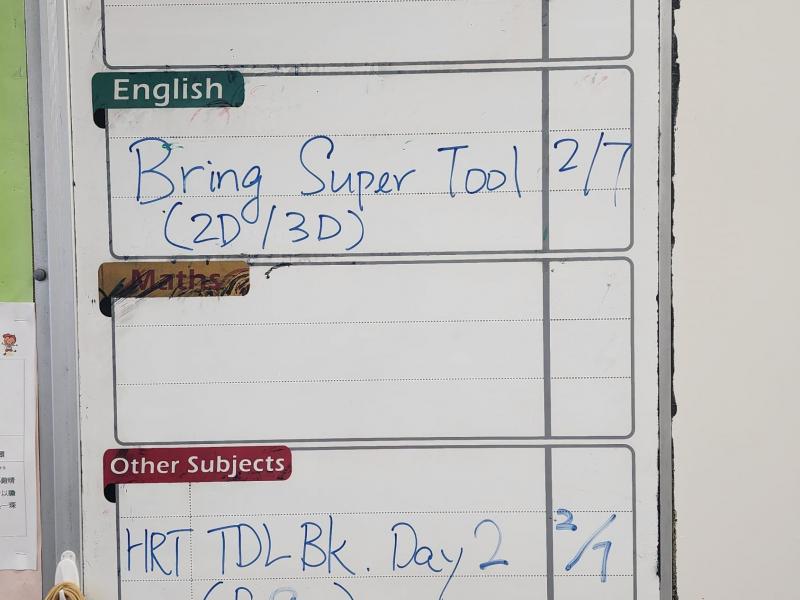 English
Bring Super Tool 2/7
(2D/3D)
Maths
Other Subjects
HRT TDL Bk. Day 2 2/7